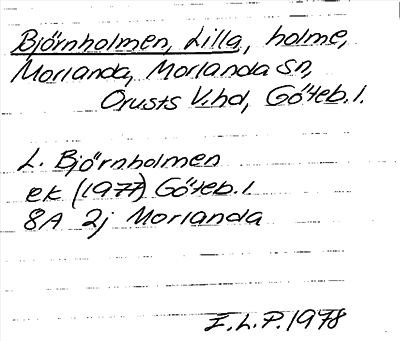 Björnholmen, Lilla, holme,
Morlanda, Morlanda sn,
Orusts V.hd, Göteb.l.
L. Björnholmen
ek (1977) Göteb.l
8A 2j Morlanda
I.L.P. 1978